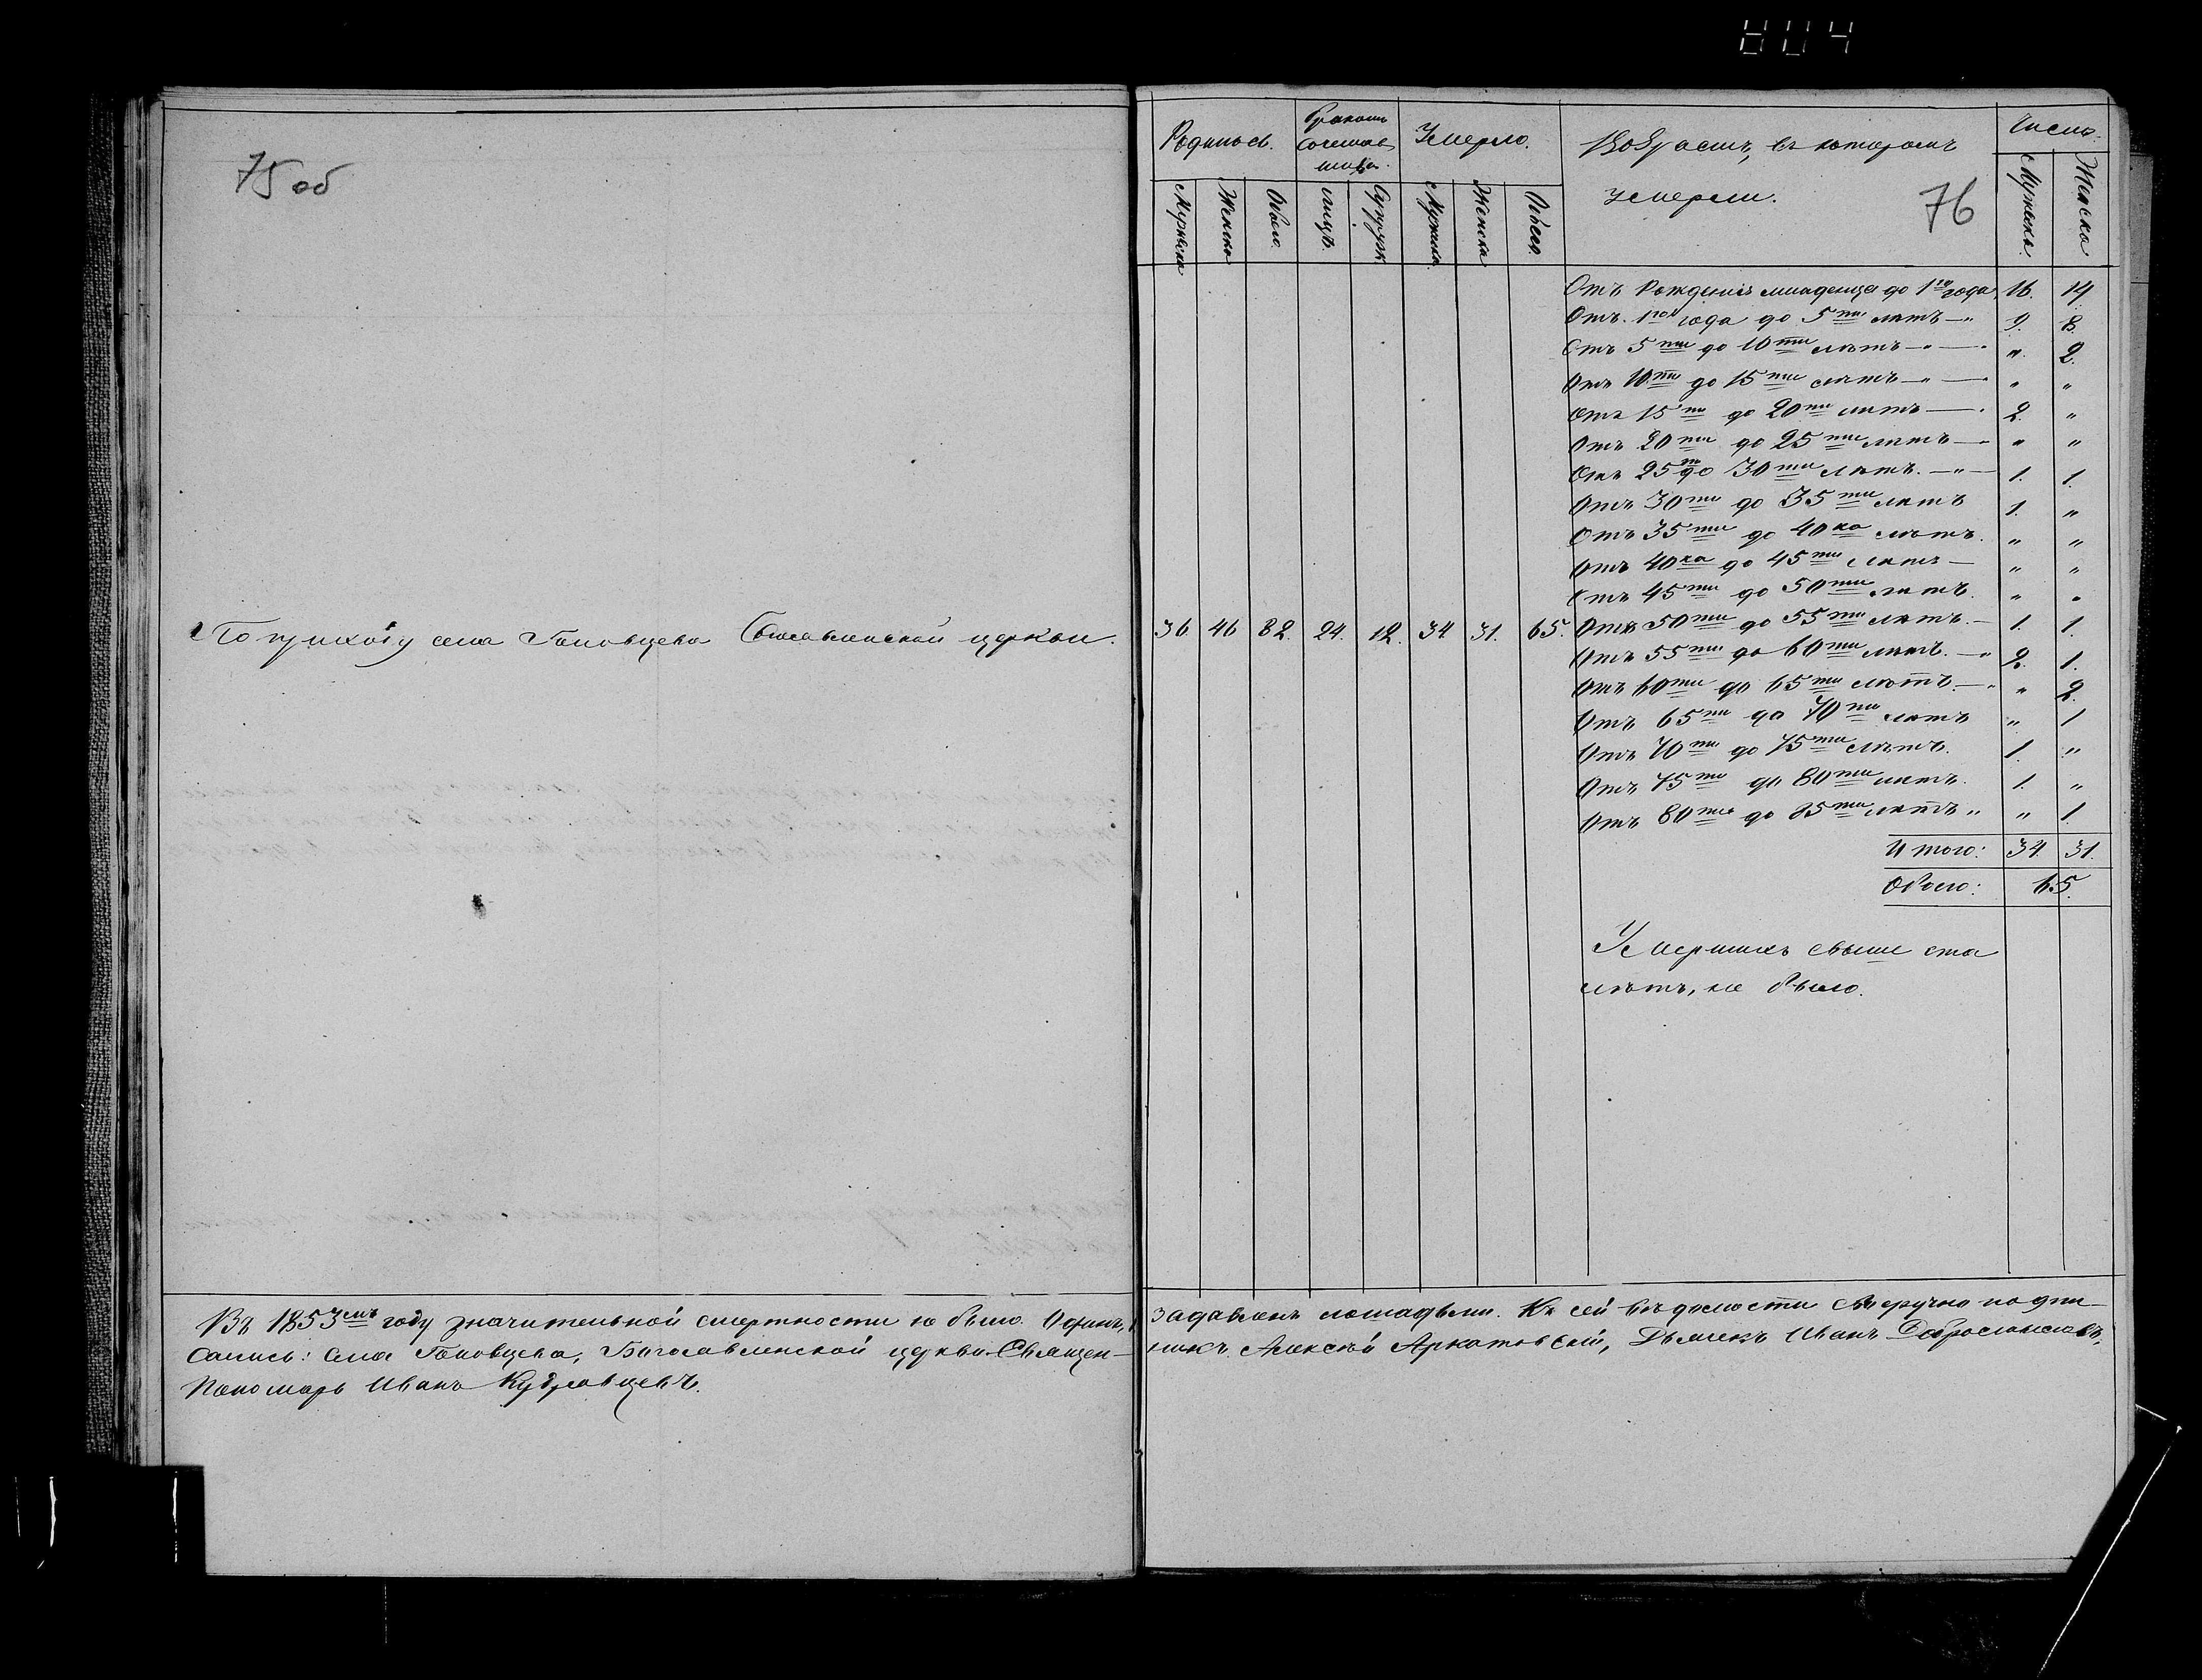 804
75 об
По приходу села Головцева Богословской церкви.
Въ 1853мъ году значительной смертности не было. Одинъ,
сались: села Головцева, Богословленской церкви Священ-
Пономарь Иванъ Кудрявцевъ.
Родилось. Бракомъ сочетаво Умерло. Возрастъ, въ которомъ умерли. Число.
76
Мужеска Женска Обоего. лицъ. Супруж Мужеска Женска Обоего. Мужеска Женска
Отъ Рожденія младенца до 1го года 16. 14.
Отъ 1го года до 5ти лѣтъ — „ 9. 8.
Отъ 5ти до 10ти лѣтъ — „ — „ 2.
Отъ 10ти до 15ти лѣтъ — „ — „ „
Отъ 15ти до 20ти лѣтъ — 2. „
Отъ 20ти до 25ти лѣтъ — „ „
Отъ 25ти до 30ти лѣтъ. — „ — 1. 1.
Отъ 30ти до 35ти лѣтъ 1. „
Отъ 35ти до 40ка лѣтъ. „ „
Отъ 40ка до 45ти лѣтъ — „ „
Отъ 45ти до 50ти лѣтъ. „ „
36. 46 82. 24. 12. 34 31. 65. Отъ 50ти до 55ти лѣтъ. — 1. 1.
Отъ 55ти до 60ти лѣтъ. — „ 2. 1.
Отъ 60ти до 65ти лѣтъ. — „ 2.
Отъ 65ти до 70ти лѣтъ „ 1
Отъ 70ти до 75ти лѣтъ. 1. „
Отъ 75ти до 80ти лѣтъ. 1. „
Отъ 80ти до 85ти лѣтъ „ „ 1.
Итого: 34. 31.
Обоего: 65.
Умершихъ свыше ста
лѣтъ, не было.
задавленъ лошадьми. Къ сей вѣдомости своеручно подпи-
никъ Алексѣй Аркатовскій, Дьячекъ Иванъ Доброслововъ,